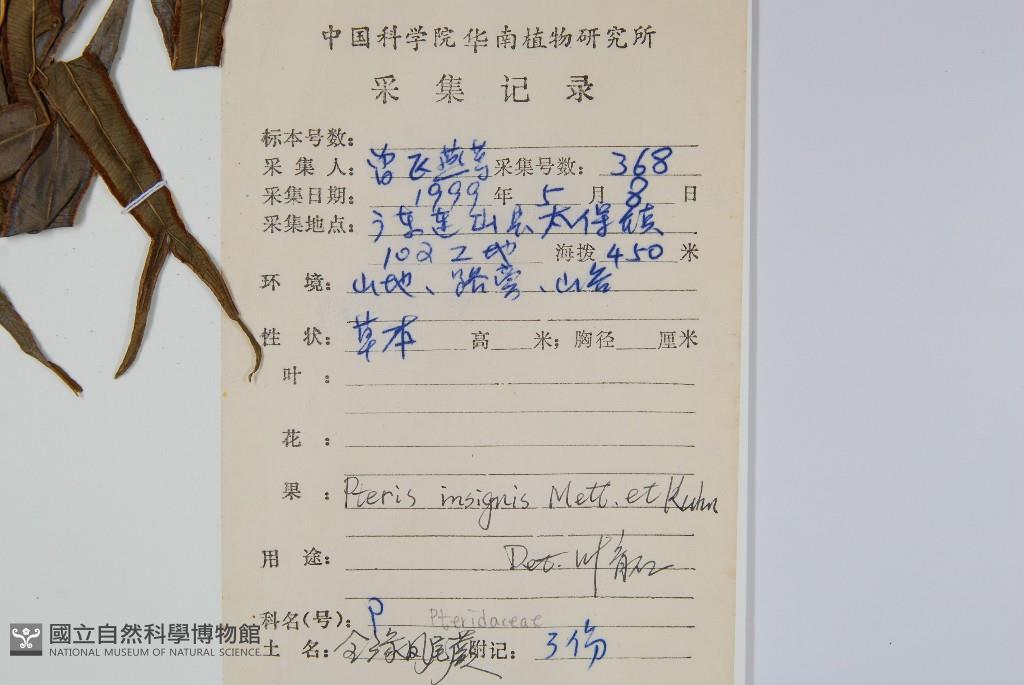 中国科学院华南植物研究所
采集记录
标本号数:
采集人: 曾飞燕等 采集号数: 368
采集日期: 1999年5月8日
采集地点: 广东连山县太保镇
102工地 海拨450米
环境: 山地、路旁、山谷
性状: 草本 高 米; 胸径 厘米
叶:
花:
果: Pteris insignis Mett. et Kuhn
用途: Det. 叶育石
科名(号): P Pteridaceae
土名: 全缘凤尾蕨 附记: 3份
國立自然科學博物館
NATIONAL MUSEUM OF NATURAL SCIENCE